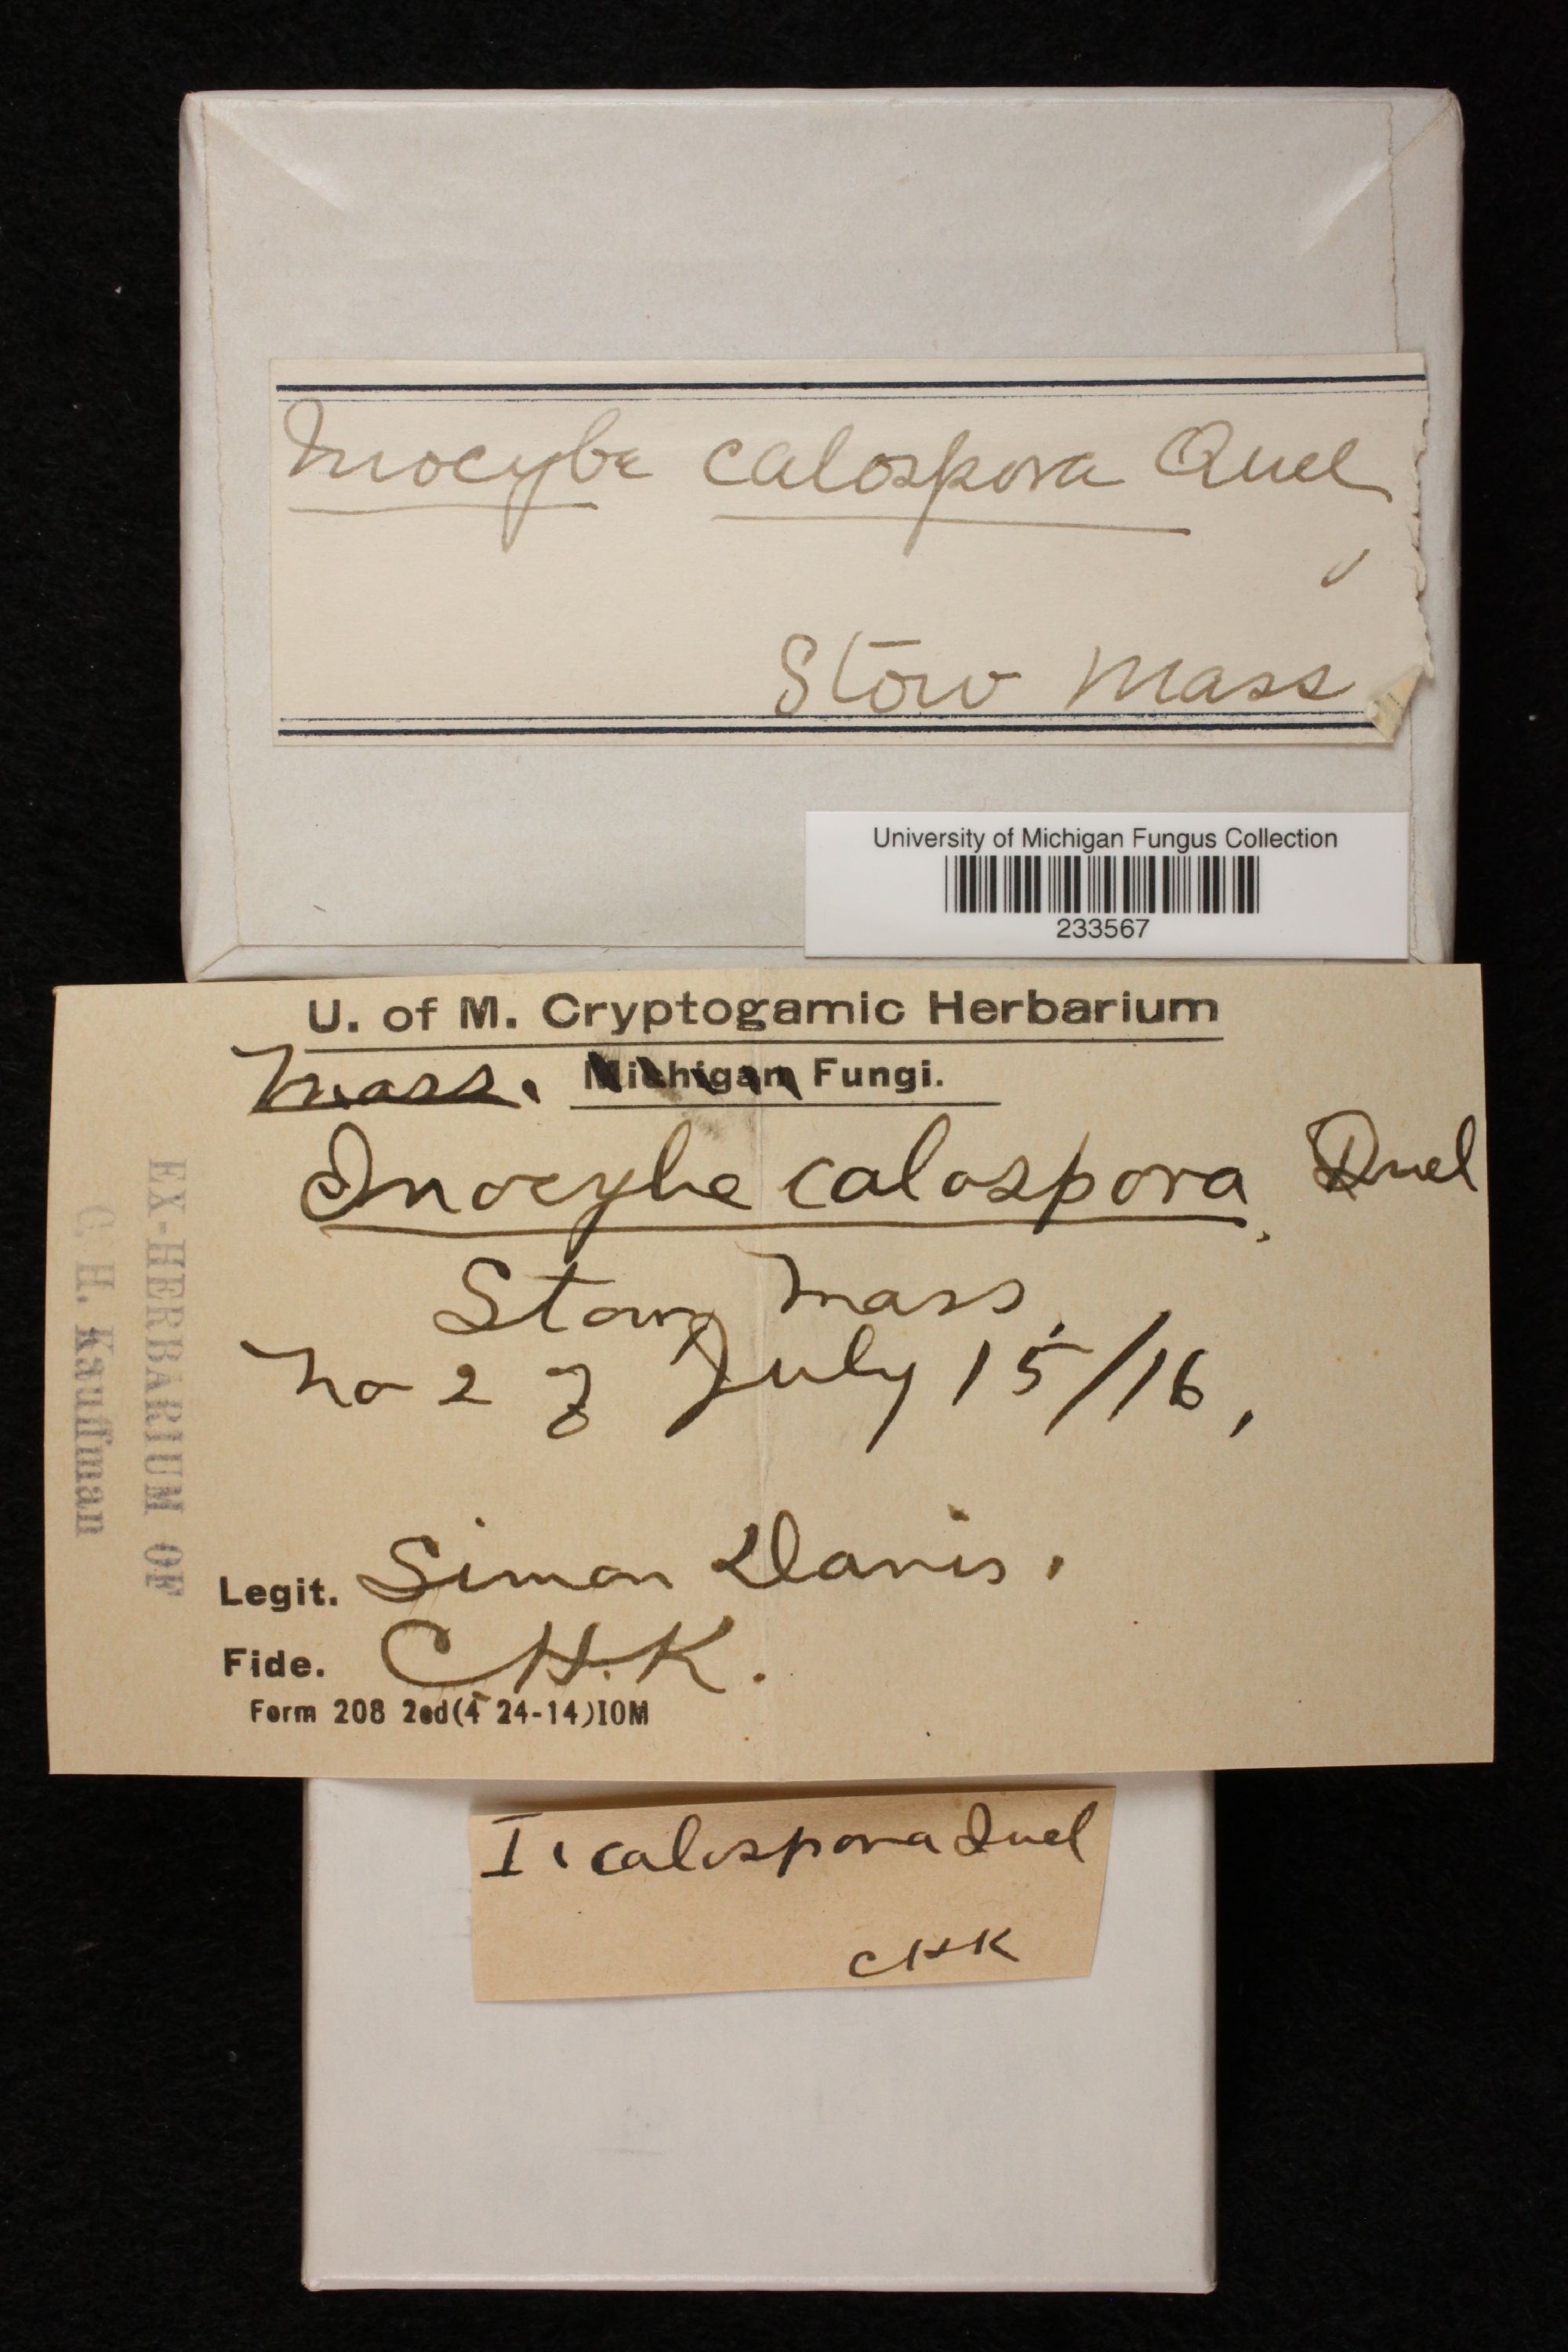 Inocybe calospora Quel
Stow Mass
University of Michigan Fungus Collection
233567
U. of M. Cryptogamic Herbarium
Mass. Michigan Fungi.
Inocybe calospora, Quel
Stow, Mass.
No 2 of July 15/16,
EX-HERBARIUM OF
C. H. Kauffman
Legit. Simon Davis.
Fide. C.H.K.
Form 208 2ed(4 24-14)10M
I. calospora Quel
CHK